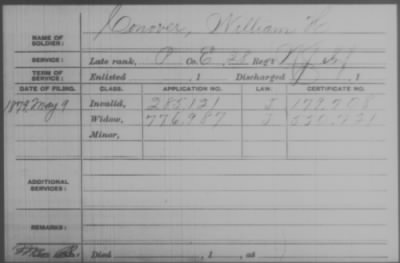 NAME OF SOLDIER: Conover, William H.
SERVICE: Late rank, P Co. E, 28 Reg't N.J. Inf
TERM OF SERVICE: Enlisted , 1 Discharged , 1
DATE OF FILING. CLASS. APPLICATION NO. LAW. CERTIFICATE NO.
1879, May 9 Invalid, 285,121 J 179,708
Widow, 776,987 J
Minor,
ADDITIONAL SERVICES:
REMARKS:
Died , 1 , at